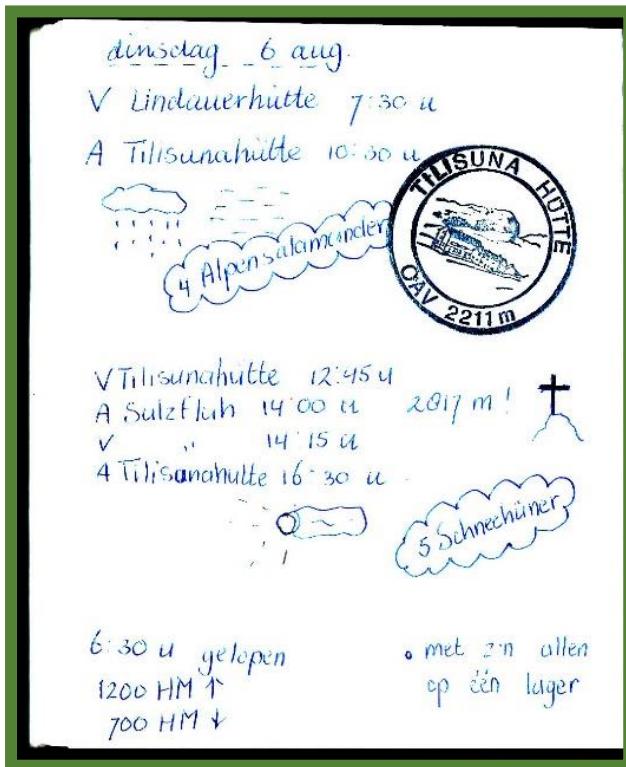 dinsdag 6 aug.
V Lindauerhütte 7:30 u
A Tilisunahütte 10:30 u
TILISUNA HÜTTE
OAV 2211m
4 Alpensalamander
V Tilisunahütte 12:45 u
A Sulzfluh 14:00 u 2817 m!
V ,, 14:15 u
A Tilisunahutte 16:30 u
5 Schneehüner
6:30 u gelopen
1200 HM ↑
700 HM ↓
• met z'n allen
op één lager